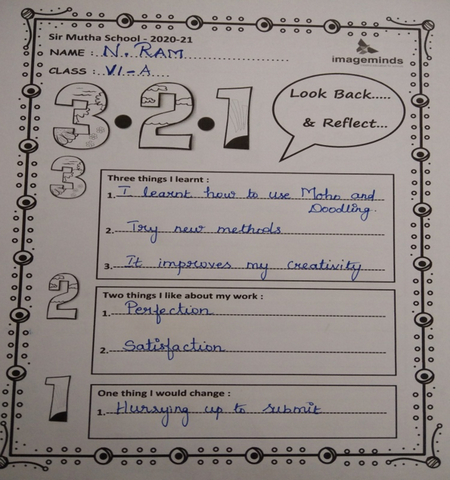 Sir Mutha School - 2020-21
NAME : N. RAM
imageminds
CLASS : VI-A
3 • 2 • 1
Look Back.....
& Reflect...
3
Three things I learnt :
1. I learnt how to use Mohn and
Doodling.
2. Try new methods
3. It improves my creativity
2
Two things I like about my work :
1. Perfection
2. Satisfaction
1
One thing I would change :
1. Hurrying up to submit